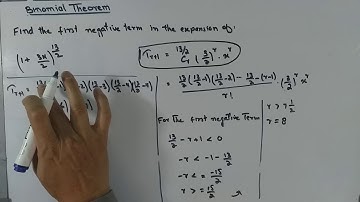 Binomial Theorem
Find the first negative term in the expansion of:
(1 + 3x/2)^13/2
T_{r+1} = ^{13/2}C_r (3/2)^r · x^r
= 13/2 (13/2 -1)(13/2 -2) ... 13/2 -(r-1) / r! · (3/2)^r x^r
For the first negative term
13/2 - r + 1 < 0
-r < -1 - 13/2
-r < = -15/2
r > = 15/2
r > 7 1/2
r = 8